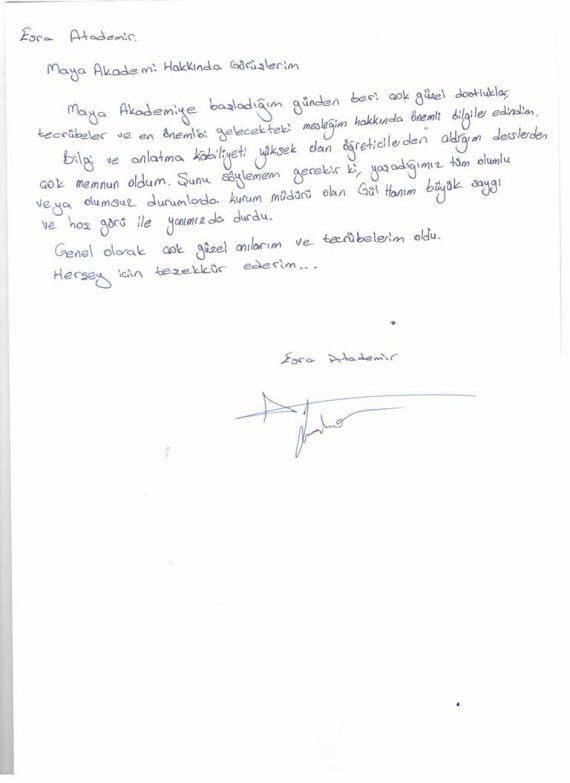 Esra Atademir.
Maya Akademi Hakkında Görüşlerim
Maya Akademiye başladığım günden beri çok güzel dostluklar,
tecrübeler ve en önemlisi gelecekteki mesleğim hakkında önemli bilgiler edindim.
Bilgi ve anlatma kabiliyeti yüksek olan öğreticilerden aldığım derslerden
çok memnun oldum. Şunu söylemem gerekir ki, yaşadığımız tüm olumlu
veya olumsuz durumlarda kurum müdürü olan Gül Hanım büyük saygı
ve hoş görü ile yanımızda durdu.
Genel olarak çok güzel anılarım ve tecrübelerim oldu.
Herşey için teşekkür ederim...
Esra Atademir